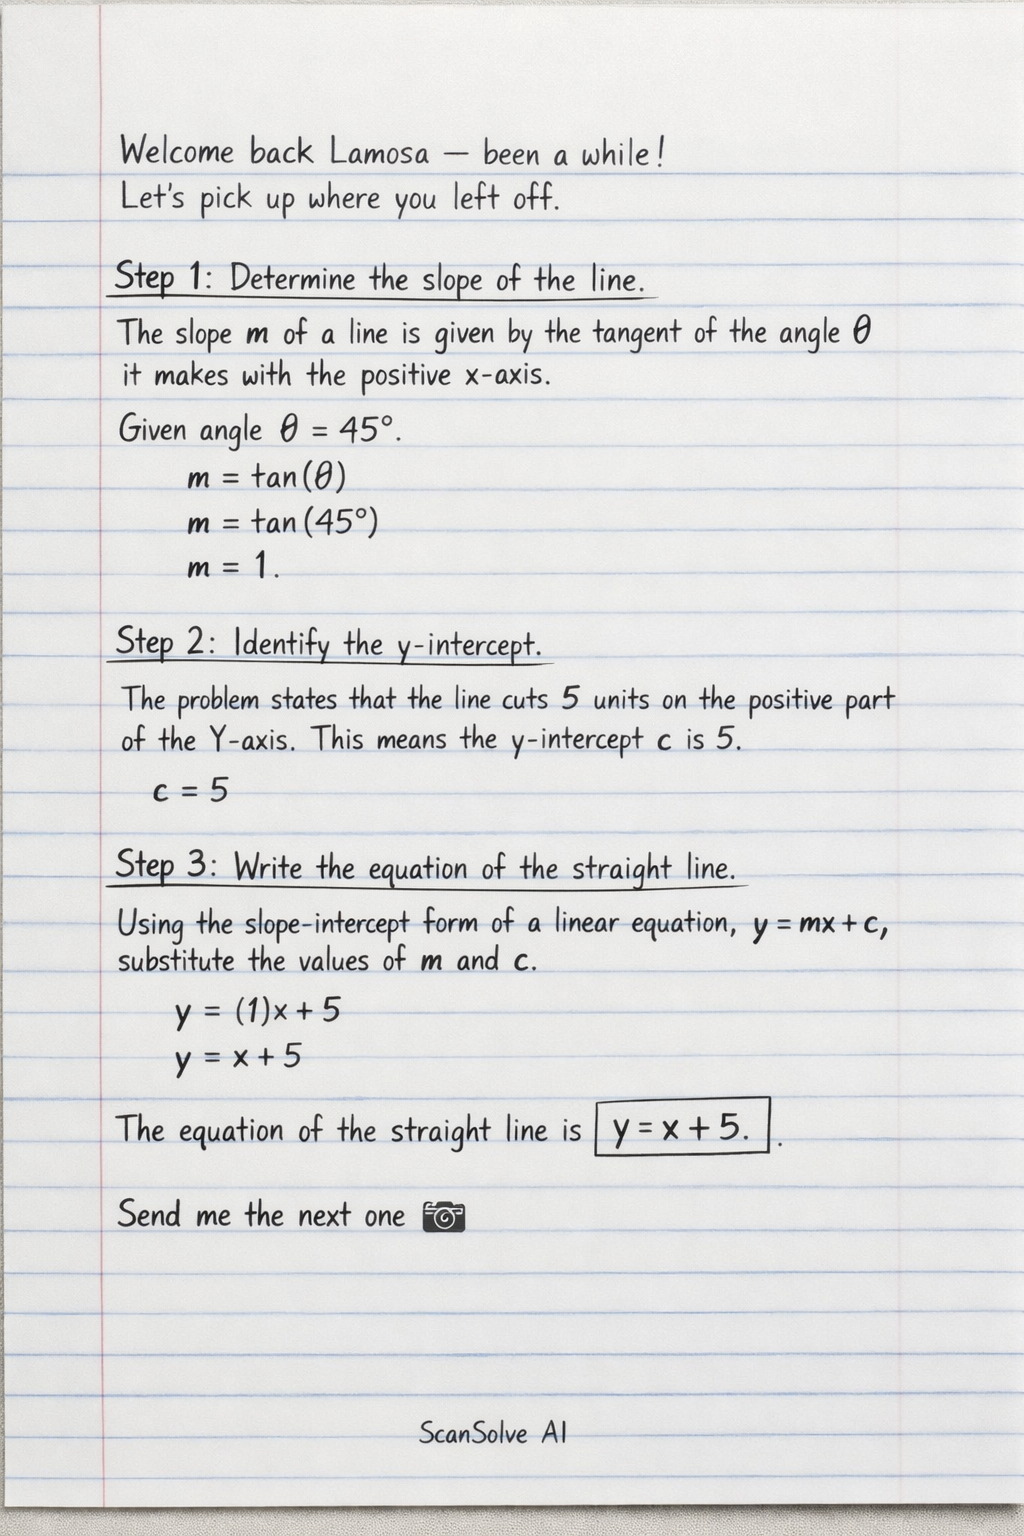 Welcome back Lamosa — been a while!
Let's pick up where you left off.
Step 1: Determine the slope of the line.
The slope m of a line is given by the tangent of the angle θ
it makes with the positive x-axis.
Given angle θ = 45°.
m = tan(θ)
m = tan(45°)
m = 1.
Step 2: Identify the y-intercept.
The problem states that the line cuts 5 units on the positive part
of the Y-axis. This means the y-intercept c is 5.
c = 5
Step 3: Write the equation of the straight line.
Using the slope-intercept form of a linear equation, y = mx + c,
substitute the values of m and c.
y = (1)x + 5
y = x + 5
The equation of the straight line is y = x + 5. .
Send me the next one 📷
ScanSolve AI